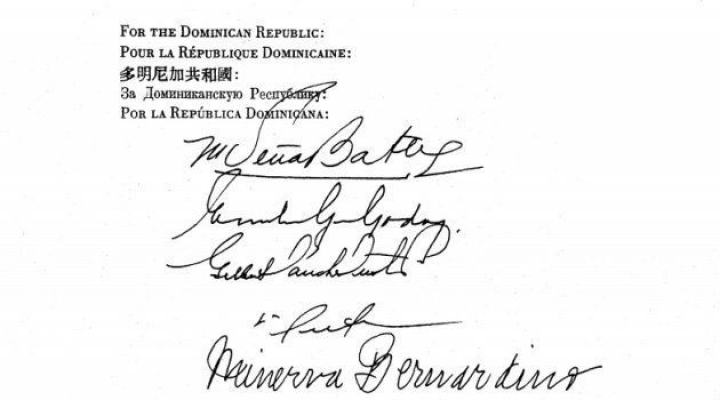 FOR THE DOMINICAN REPUBLIC:
POUR LA RÉPUBLIQUE DOMINICAINE:
多明尼加共和國:
За Доминиканскую Республику:
POR LA REPÚBLICA DOMINICANA:
M Peña Batlle
Godoy
Minerva Bernardino